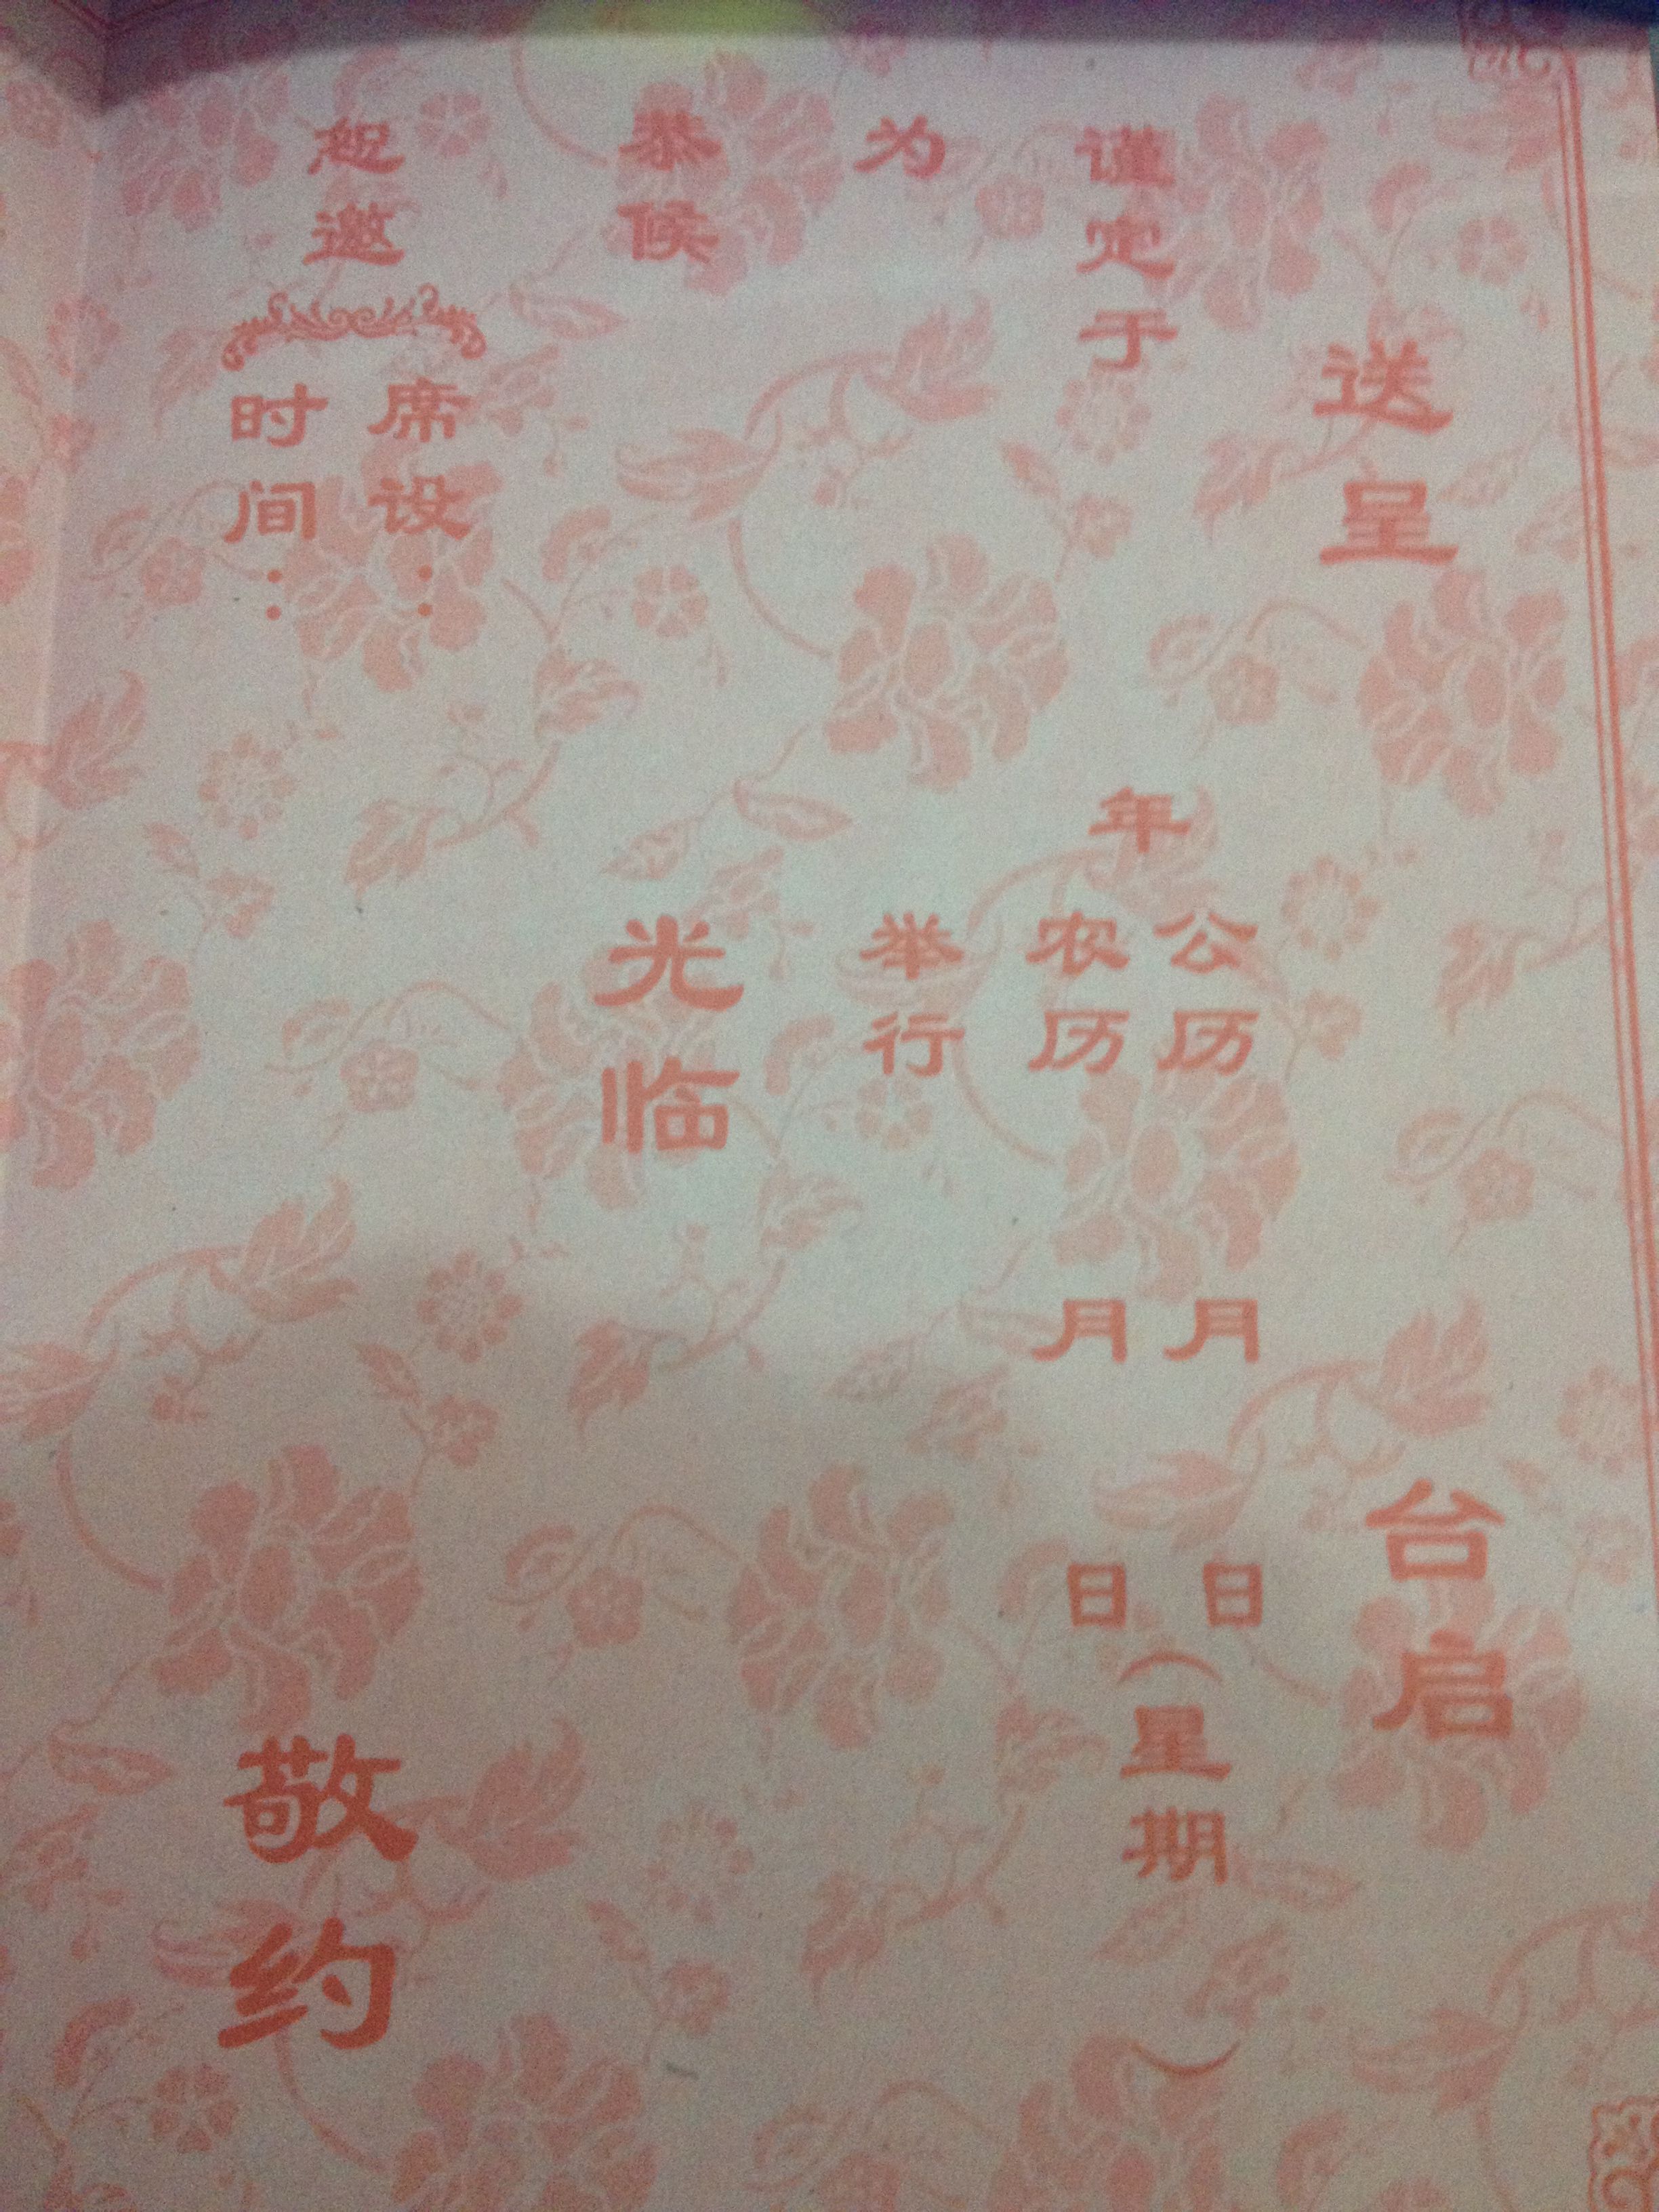 送呈 台启
谨定于 年 公历 月 日
农历 月 日 (星期 )
为 举行
恭候
光临
席设:
恕邀
时间:
敬约